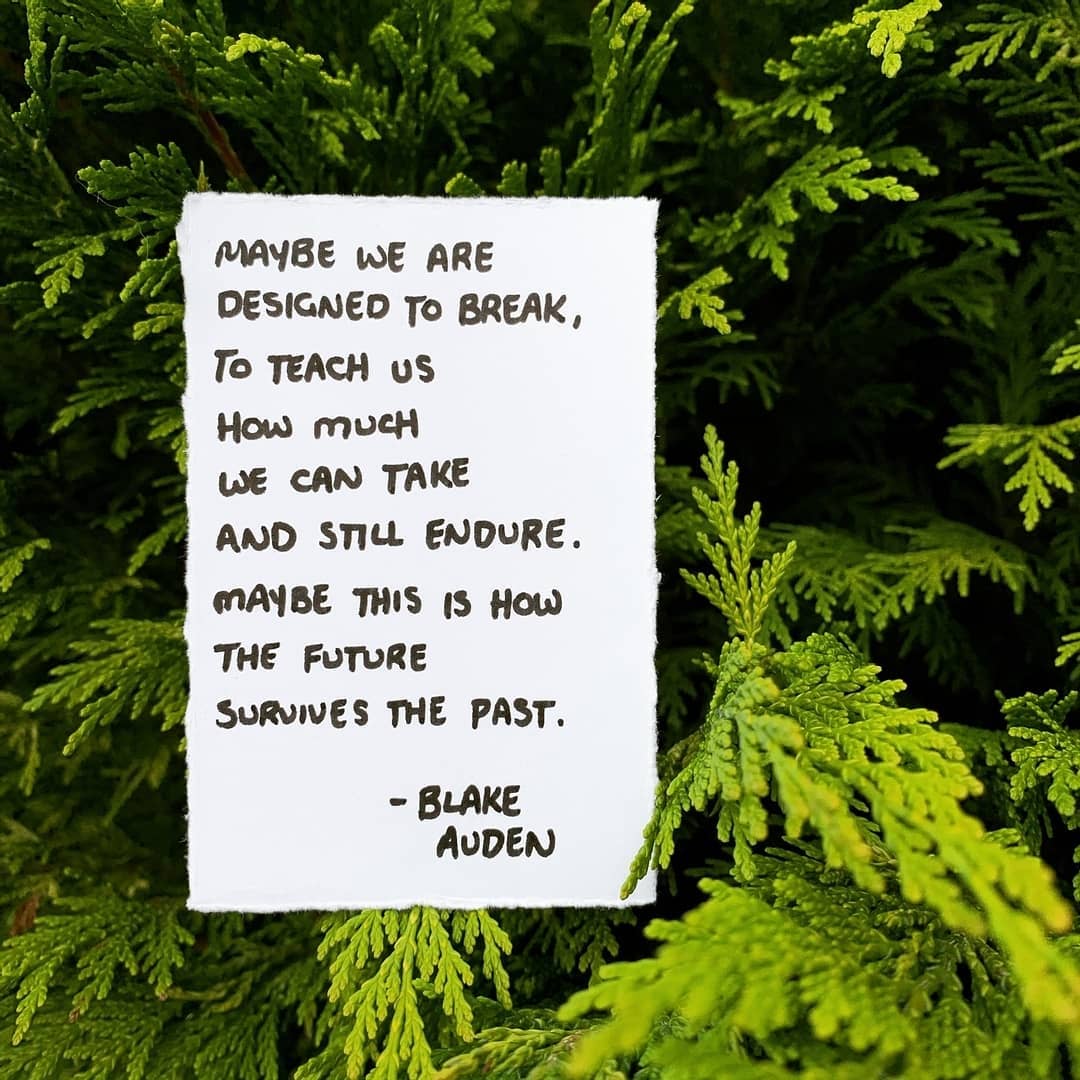 MAYBE WE ARE
DESIGNED TO BREAK,
TO TEACH US
HOW MUCH
WE CAN TAKE
AND STILL ENDURE.
MAYBE THIS IS HOW
THE FUTURE
SURVIVES THE PAST.
- BLAKE
AUDEN